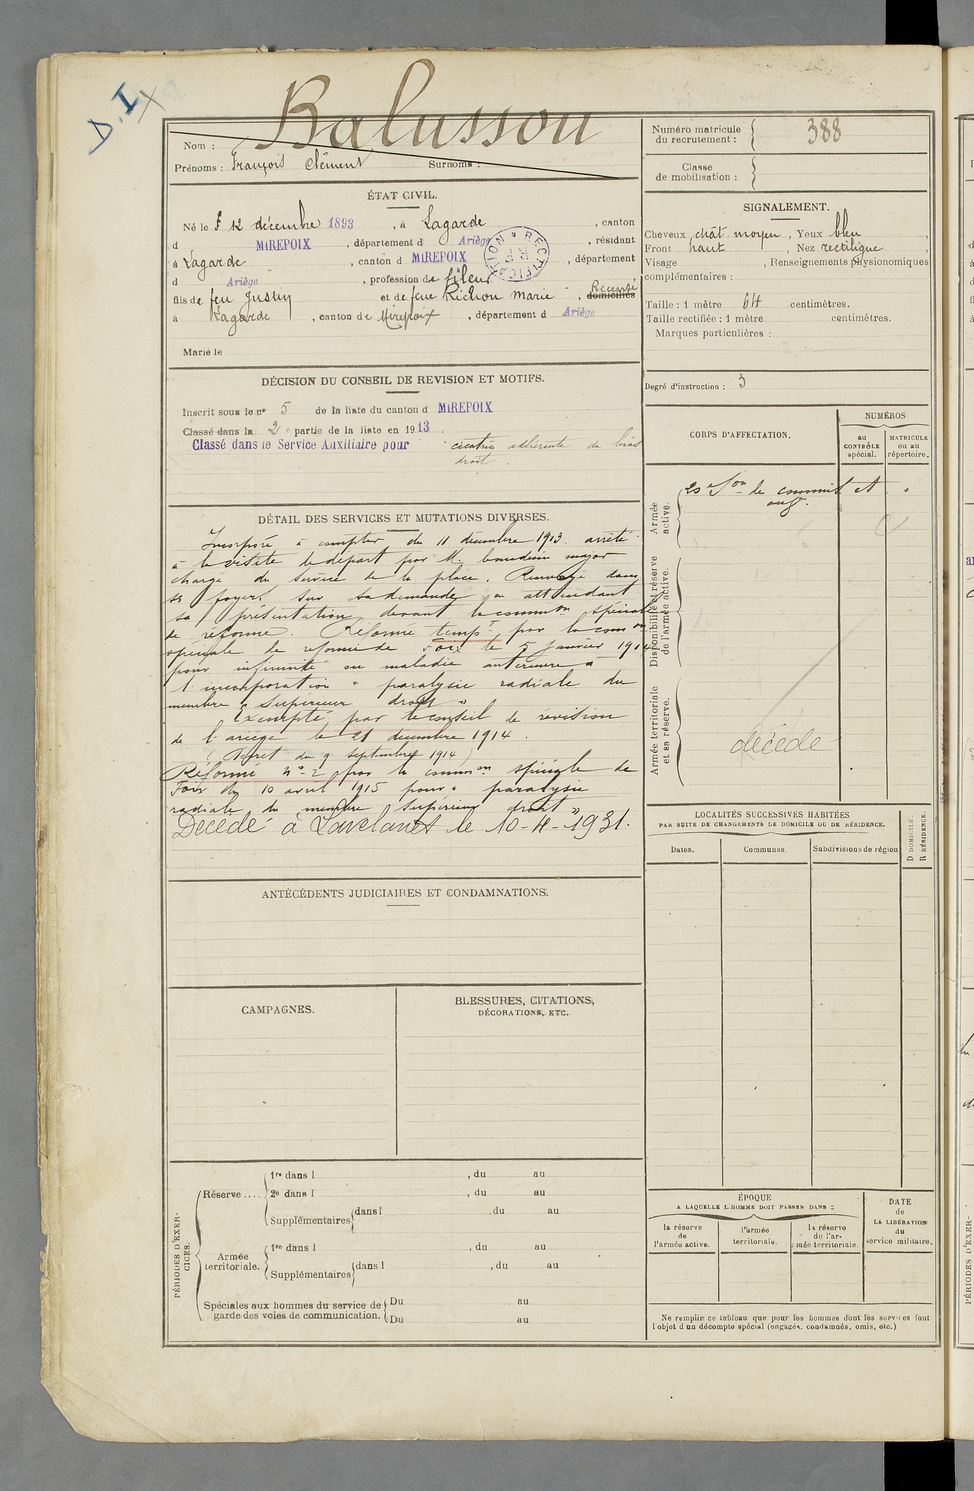 D.I
Balusson
Nom :
Prénoms : François Clément Surnoms :
Numéro matricule du recrutement : 388
Classe de mobilisation :
ÉTAT CIVIL.
Né le 12 décembre 1893, à Lagarde, canton
d MIREPOIX, département d Ariège, résidant
à Lagarde, canton d MIREPOIX, département
d Ariège, profession de fileur
fils de feu Justin et de feue Richou Marie, domiciliés
à Lagarde, canton de Mirepoix, département d Ariège
Marié le
RECTIFICATION R F
SIGNALEMENT.
Cheveux chât moyen, Yeux bleu,
Front haut, Nez rectiligne
Visage , Renseignements physionomiques
complémentaires :
Taille : 1 mètre 64 centimètres.
Taille rectifiée : 1 mètre centimètres.
Marques particulières :
Degré d'instruction : 3
DÉCISION DU CONSEIL DE REVISION ET MOTIFS.
Inscrit sous le nº 5 de la liste du canton d MIREPOIX
Classé dans la 2e partie de la liste en 1913.
Classé dans le Service Auxiliaire pour cicatrice adhérente du bras
droit.
CORPS D'AFFECTATION.
NUMÉROS
au CONTRÔLE spécial.
MATRICULE ou au répertoire.
Armée active.
Disponibilité et réserve de l'armée active.
Armée territoriale et sa réserve.
décédé
DÉTAIL DES SERVICES ET MUTATIONS DIVERSES.
Incorporé à compter du 11 décembre 1913 arrêté
à la visite de départ par M. major
chargé du service de la place. Renvoyé dans
ses foyers sur sa demande en attendant
sa présentation devant la common spéciale
de réforme. Réformé tempre par la common
spéciale de réforme de Foix le 5 Janvier 1914
pour infirmité ou maladie antérieure à
l'incorporation "paralysie radiale du
membre supérieur droit"
Exempté par le conseil de révision
de l'ariège le 21 décembre 1914.
(Décret du 9 septembre 1914)
Réformé nº 2 par la common spéciale de
Foix du 10 avril 1915 pour "paralysie
radiale du membre supérieur droit"
Décédé à Lavelanet le 10-4-1931.
LOCALITÉS SUCCESSIVES HABITÉES
PAR SUITE DE CHANGEMENTS DE DOMICILE OU DE RÉSIDENCE.
Dates. Communes. Subdivisions de région
D DOMICILE.
R RÉSIDENCE.
ANTÉCÉDENTS JUDICIAIRES ET CONDAMNATIONS.
CAMPAGNES.
BLESSURES, CITATIONS,
DÉCORATIONS, ETC.
PÉRIODES D'EXERCICES.
Réserve....
1re dans l , du au
2e dans l , du au
Supplémentaires dans l , du au
Armée territoriale.
1re dans l , du au
Supplémentaires dans l , du au
Spéciales aux hommes du service de
garde des voies de communication.
Du au
Du au
ÉPOQUE
A LAQUELLE L'HOMME DOIT PASSER DANS :
la réserve de l'armée active.
l'armée territoriale.
la réserve de l'armée territoriale.
DATE de LA LIBÉRATION du service militaire.
Ne remplir ce tableau que pour les hommes dont les services font
l'objet d'un décompte spécial (engagés, condamnés, omis, etc.)